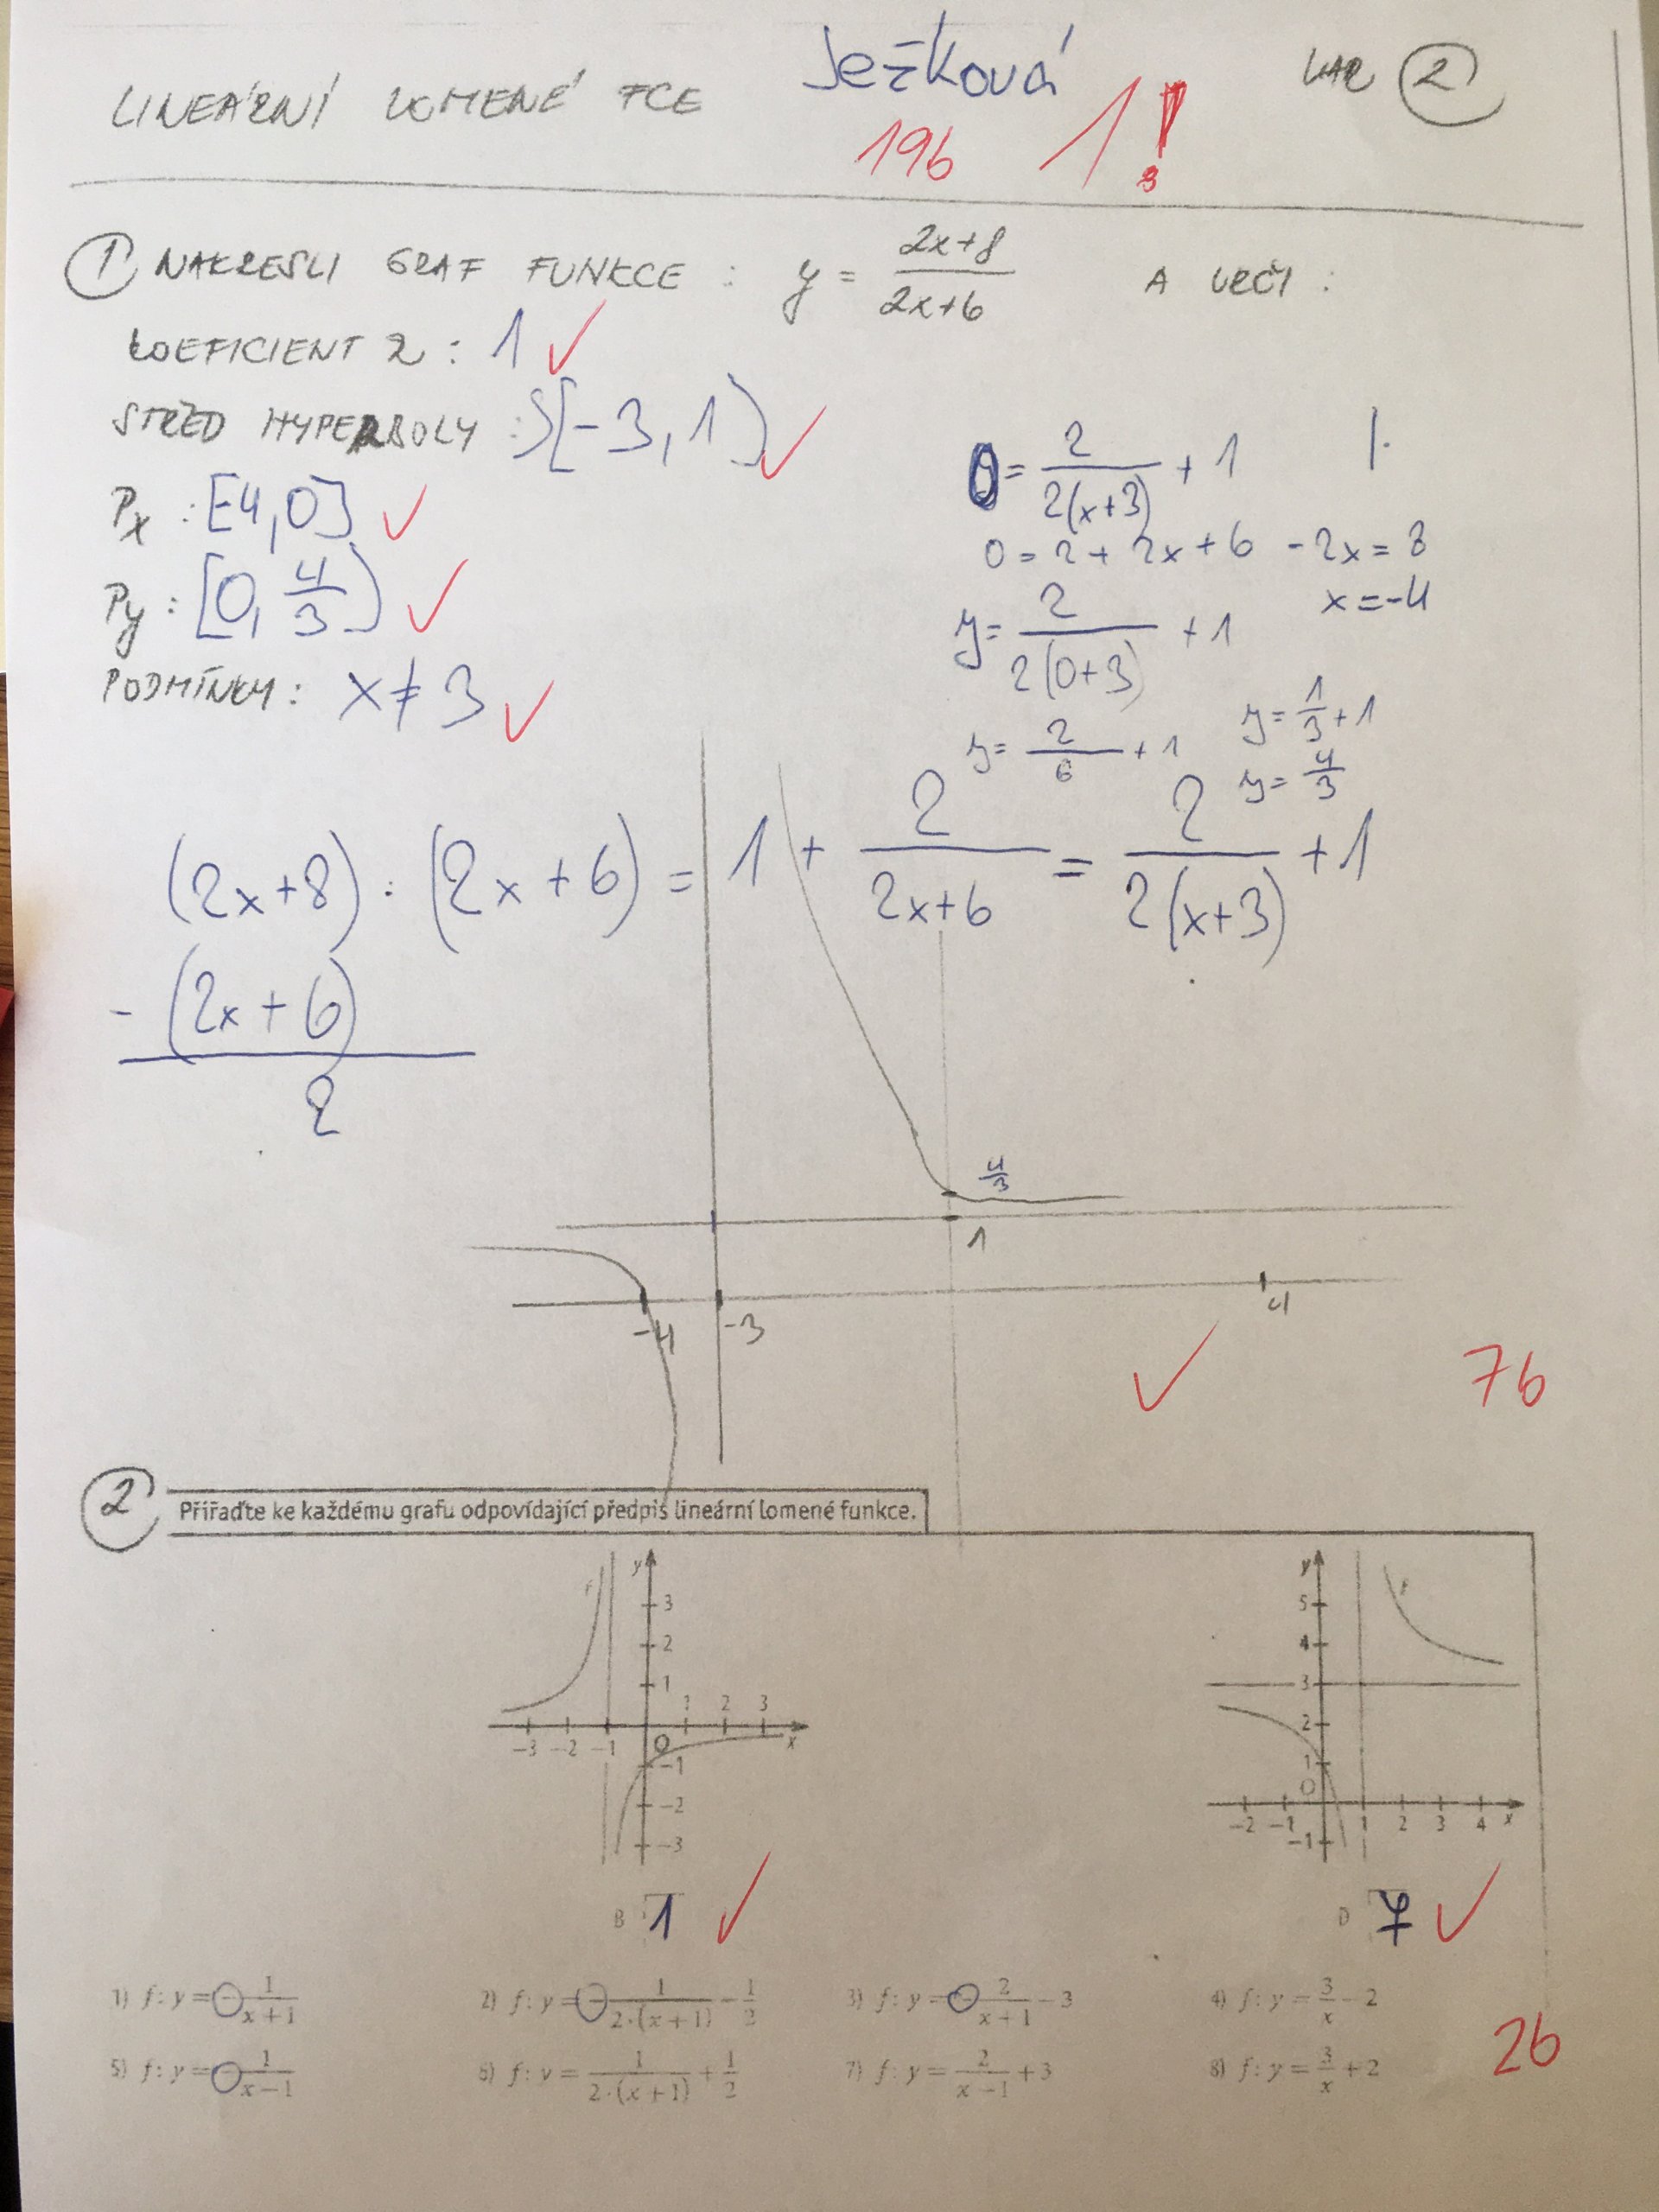 LINEÁRNÍ LOMENÉ FCE Ježková VAR 2
19b 1!
1 NAKRESLI GRAF FUNKCE : y = (2x+8)/(2x+6) A URČI :
KOEFICIENT 2 : 1
STŘED HYPERBOLY : S[-3,1]
0 = 2/(2(x+3)) + 1
Px : [-4,0]
0 = 2 + 2x + 6 -2x = 8
x = -4
Py : [0, 4/3]
y = 2/(2(0+3)) + 1
PODMÍNKY : x ≠ 3
y = 2/6 + 1 y = 1/3 + 1
y = 4/3
(2x+8) : (2x+6) = 1 + 2/(2x+6) = 2/(2(x+3)) + 1
- (2x+6)
2
4/3
1
-4 -3 4
7b
2 Přiřaďte ke každému grafu odpovídající předpis lineární lomené funkce.
y
3
2
1
1 2 3
-3 -2 -1 O x
-1
-2
-3
y
5
4
3
2
1
O
-2 -1 1 2 3 4 x
-1
B 1 D 7
1) f: y = - 1/(x+1) 2) f: y = - 1/(2·(x+1)) - 1/2 3) f: y = - 2/(x+1) - 3 4) f: y = 3/x - 2
2b
5) f: y = - 1/(x-1) 6) f: y = 1/(2·(x+1)) + 1/2 7) f: y = 2/(x-1) + 3 8) f: y = 3/x + 2